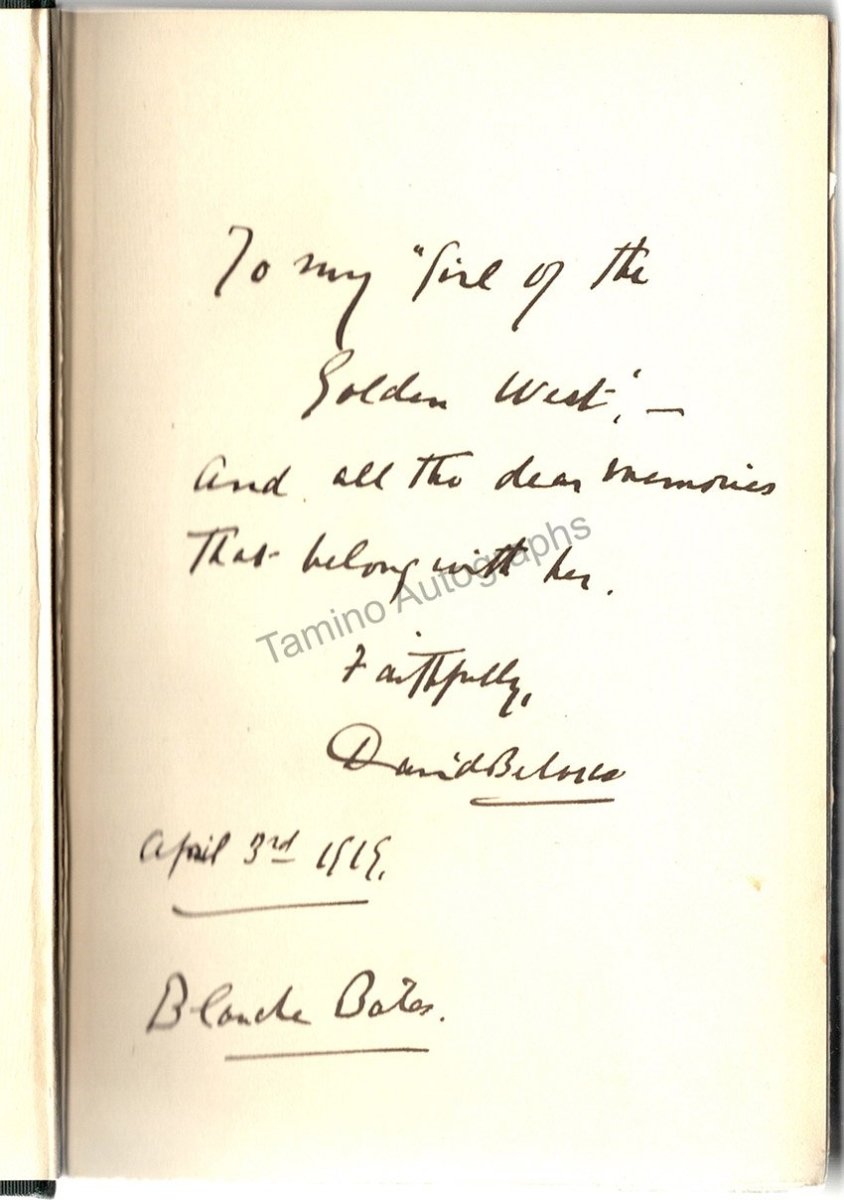 To my "Girl of the
Golden West", —
And all the dear memories
That belong with her.
Tamino Autographs
Faithfully,
David Belasco
April 3rd 1919.
Blanche Bates.